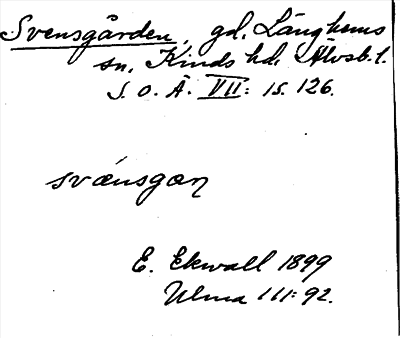 Svensgården, gd. Länghems
sn, Kinds hd. Älvsb. l.
S. O. Ä. VII: 1 s. 126.
svænsgaɳ
E. Ekwall 1899
Ulma 111: 92.